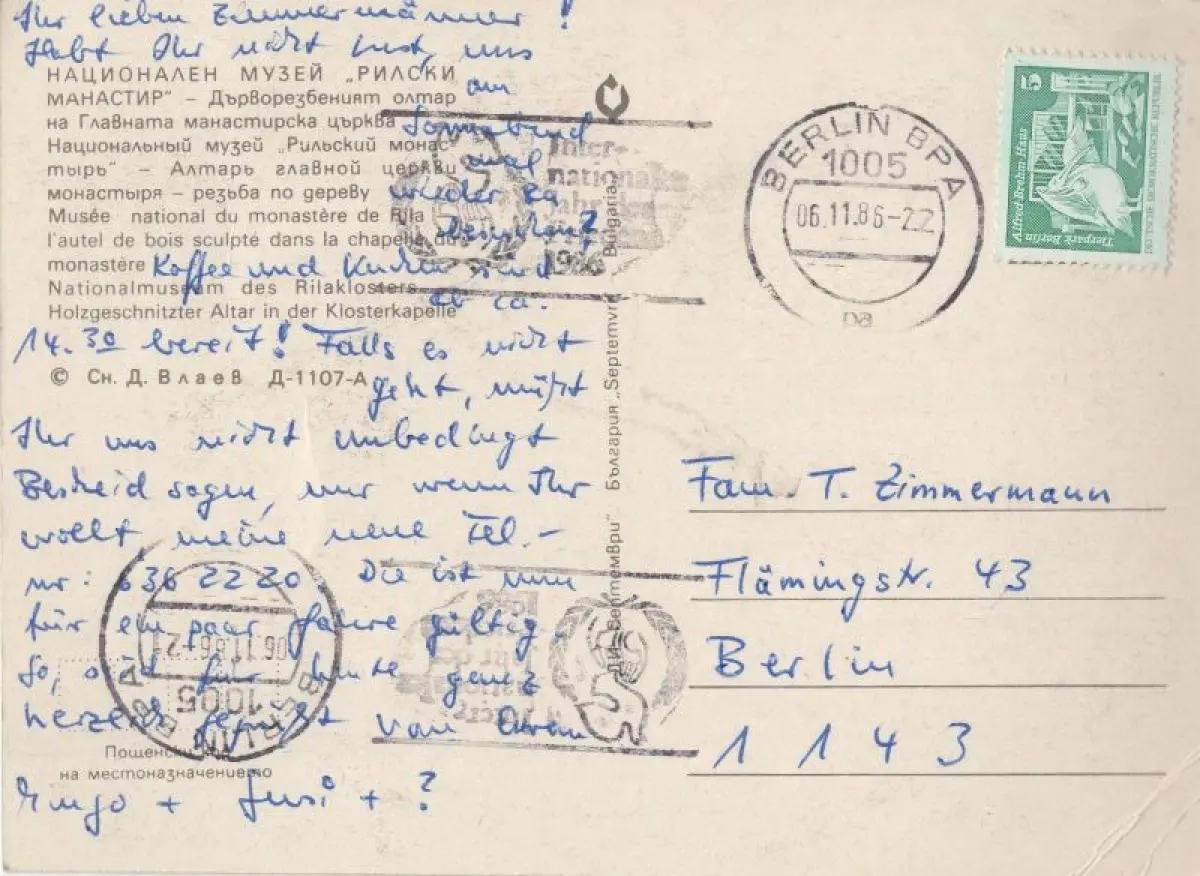 Ihr lieben Zimmermänner!
Habt Ihr nicht Lust, uns
am
Sonnabend
mal
wieder zu
besuchen?
Kaffee und Kuchen sind
ab ca.
14.30 bereit! Falls es nicht
geht, müßt
Ihr uns nicht unbedingt
Bescheid sagen, nur wenn Ihr
wollt meine neue Tel.-
nr: 636 22 20 Die ist nun
für ein paar Jahre gültig.
So, seid für heute ganz
herzlich gegrüßt von Euren
Ingo + Susi + ?
НАЦИОНАЛЕН МУЗЕЙ „РИЛСКИ
МАНАСТИР" – Дърворезбеният олтар
на Главната манастирска църква
Национальный музей „Рильский монас-
тырь" – Алтарь главной церкви
монастыря – резьба по дереву
Musée national du monastère de Rila
l'autel de bois sculpté dans la chapelle du
monastère
Nationalmuseum des Rilaklosters
Holzgeschnitzter Altar in der Klosterkapelle
© Сн. Д. Влаев Д-1107-А
Пощенски код
на местоназначението
ДИ „Септември" България „Septemvri" Bulgaria
Inter-
nationales
Jahr des
Friedens
1986
BERLIN BPA
1005
06.11.86-22
pa
5
Alfred-Brehm-Haus
Tierpark Berlin
DEUTSCHE DEMOKRATISCHE REPUBLIK
Fam. T. Zimmermann
Flämingstr. 43
Berlin
1143
BERLIN BPA
1005
06.11.86-2